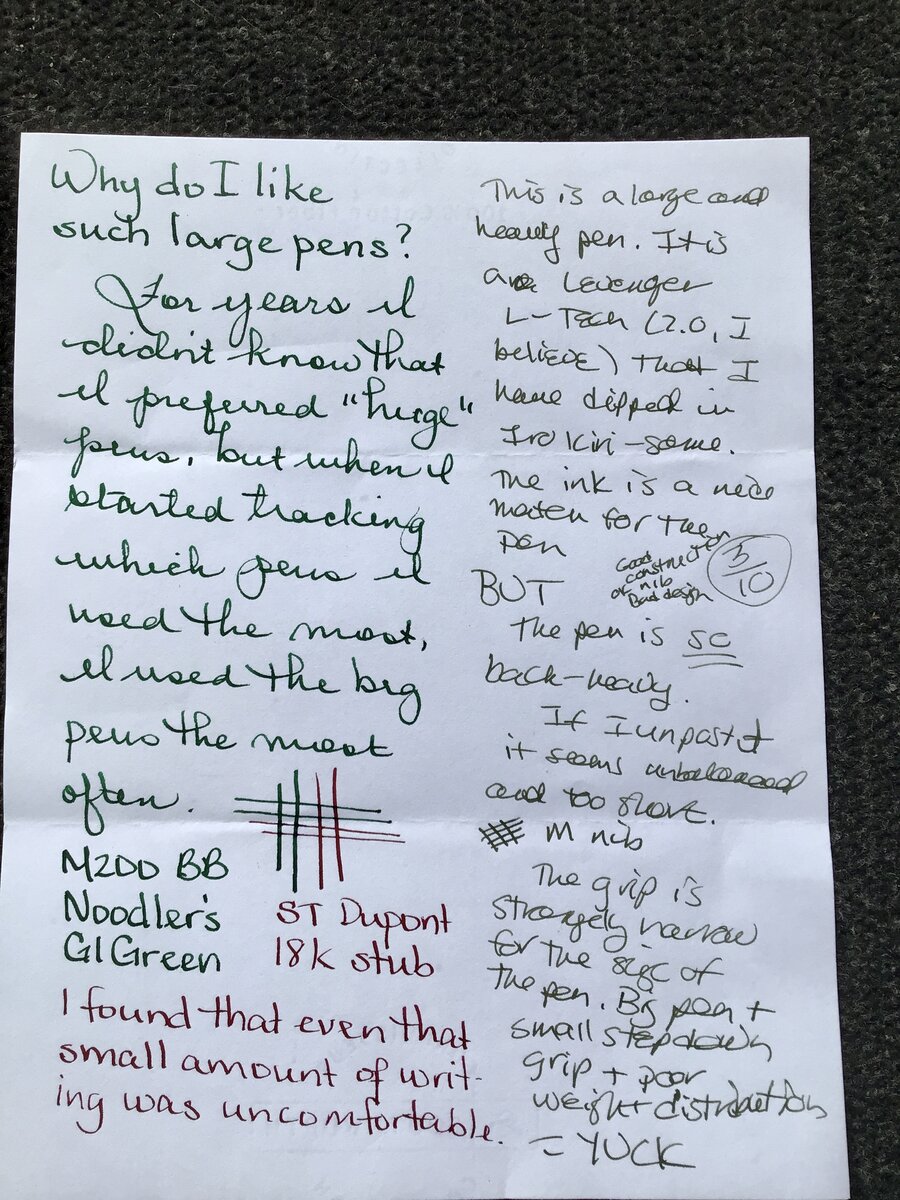 Why do I like
such large pens?
For years I
didn't know that
I preferred "huge"
pens, but when I
started tracking
which pens I
used the most,
I used the big
pens the most
often.
M200 BB
Noodler's
GI Green
ST Dupont
18k stub
I found that even that
small amount of writ-
ing was uncomfortable.
This is a large and
heavy pen. It is
a Levenger
L-Tech (2.0, I
believe) that I
have dipped in
Iro Kiri-some.
The ink is a nice
match for the
pen
BUT
Good
construction
of nib
Bad design
3/10
The pen is so
back-heavy.
If I unpost it
it seems unbalanced
and too short.
M nib
The grip is
strangely narrow
for the size of
the pen. Big pen +
small stepdown
grip + poor
weight distribution
= YUCK